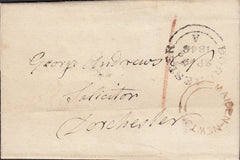 George Andrews Esqr
Solicitor
Dorchester
MAIDEN-NEWTON